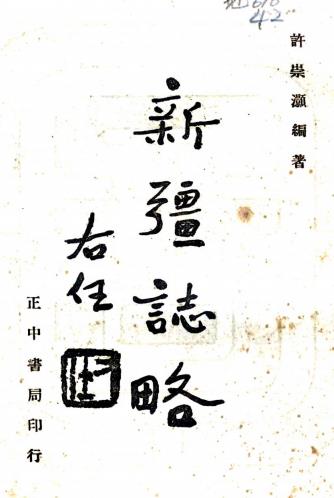 許崇灝編著
新疆誌略
右任
正中書局印行
42